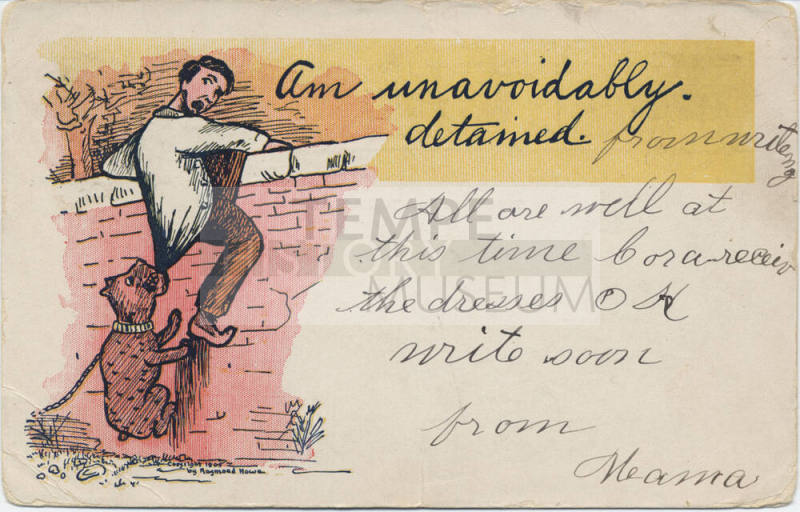 Am unavoidably.
detained. from writeng
All are well at
this time Cora receiv
the dresses OK
write soon
from
Mama
TEMPE
HISTORY
MUSEUM
Copyright 1905
by Raymond Howe